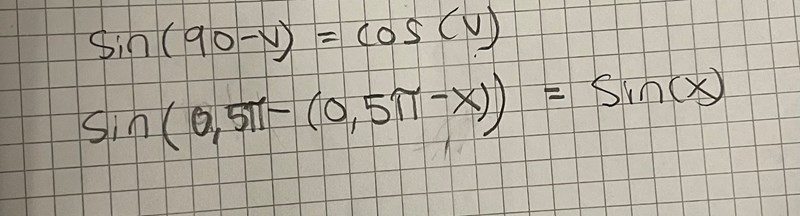 sin(90-v) = cos(v)
sin(0,5π-(0,5π-x)) = sin(x)